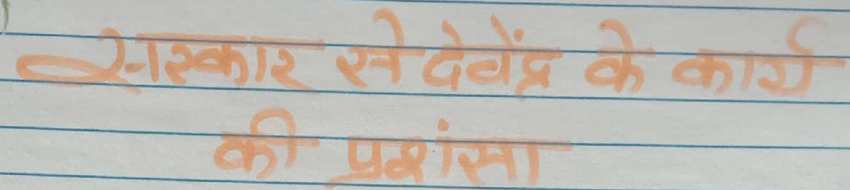 सरकार से देवेंद्र के कार्य
की प्रशंसा